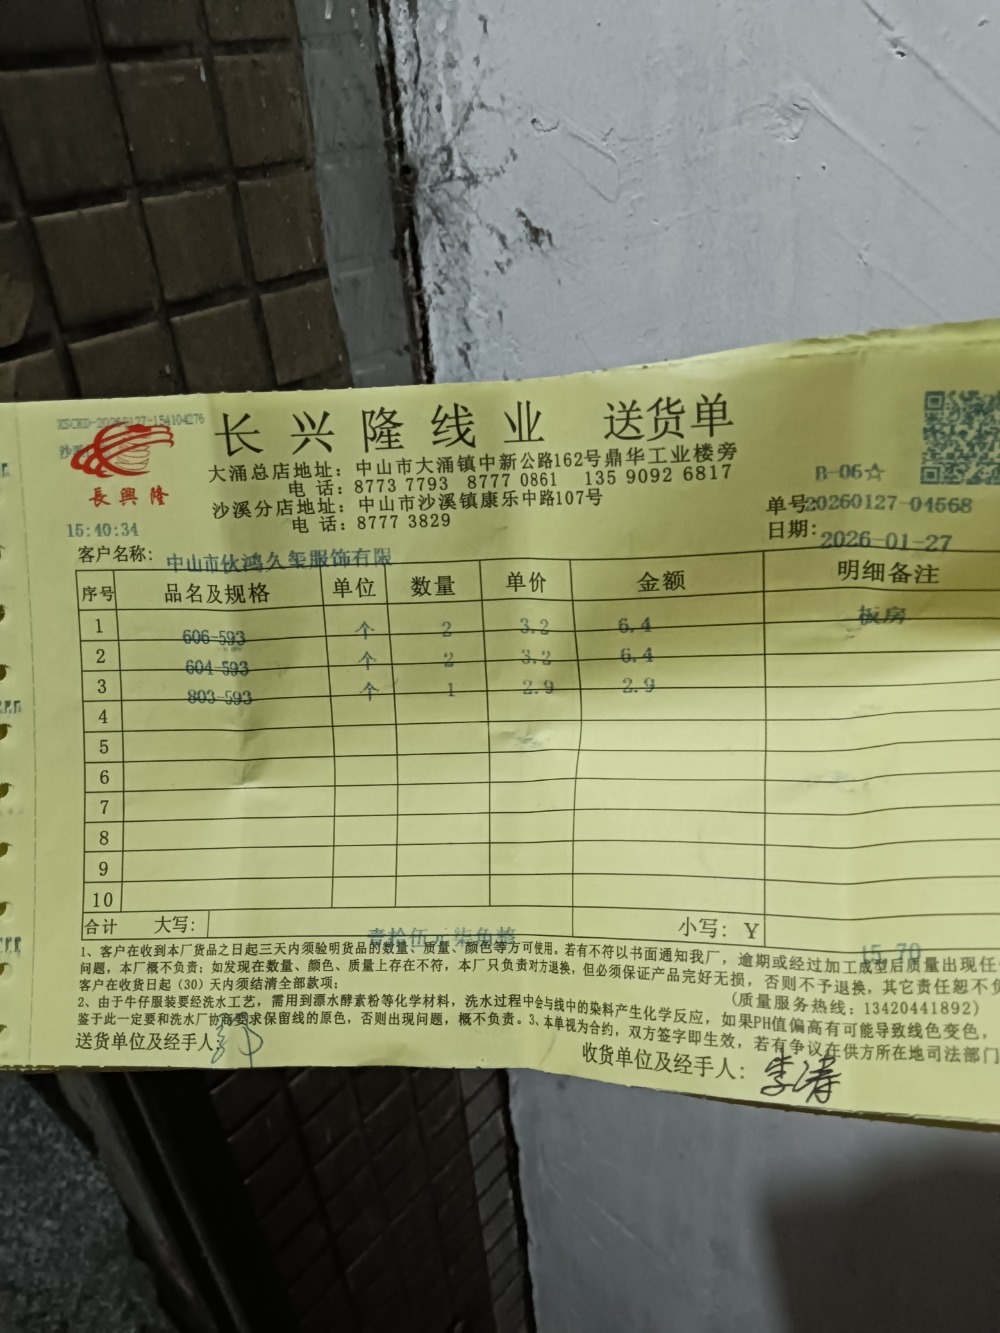 长兴隆线业 送货单
長興隆
大涌总店地址：中山市大涌镇中新公路162号鼎华工业楼旁
电 话：8773 7793 8777 0861 135 9092 6817
沙溪分店地址：中山市沙溪镇康乐中路107号
电 话：8777 3829
B-06☆
单号:20260127-04568
日期: 2026-01-27
15:40:34
客户名称: 中山市伙鸿久玺服饰有限
序号 品名及规格 单位 数量 单价 金额 明细备注
1 606-593 个 2 3.2 6.4 板房
2 604-593 个 2 3.2 6.4
3 803-593 个 1 2.9 2.9
4
5
6
7
8
9
10
合计 大写: 壹拾伍元柒角整 小写: Y 15.70
1、客户在收到本厂货品之日起三天内须验明货品的数量、质量、颜色等方可使用。若有不符以书面通知我厂，逾期或经过加工成型后质量出现任
问题，本厂概不负责；如发现在数量、颜色、质量上存在不符，本厂只负责对方退换，但必须保证产品完好无损，否则不予退换，其它责任恕不负
客户在收货日起（30）天内须结清全部款项； (质量服务热线：13420441892)
2、由于牛仔服装要经洗水工艺，需用到漂水酵素粉等化学材料，洗水过程中会与线中的染料产生化学反应，如果PH值偏高有可能导致线色变色，
鉴于此一定要和洗水厂协商要求保留线的原色，否则出现问题，概不负责。3、本单视为合约，双方签字即生效，若有争议在供方所在地司法部门
送货单位及经手人:
收货单位及经手人: 李涛